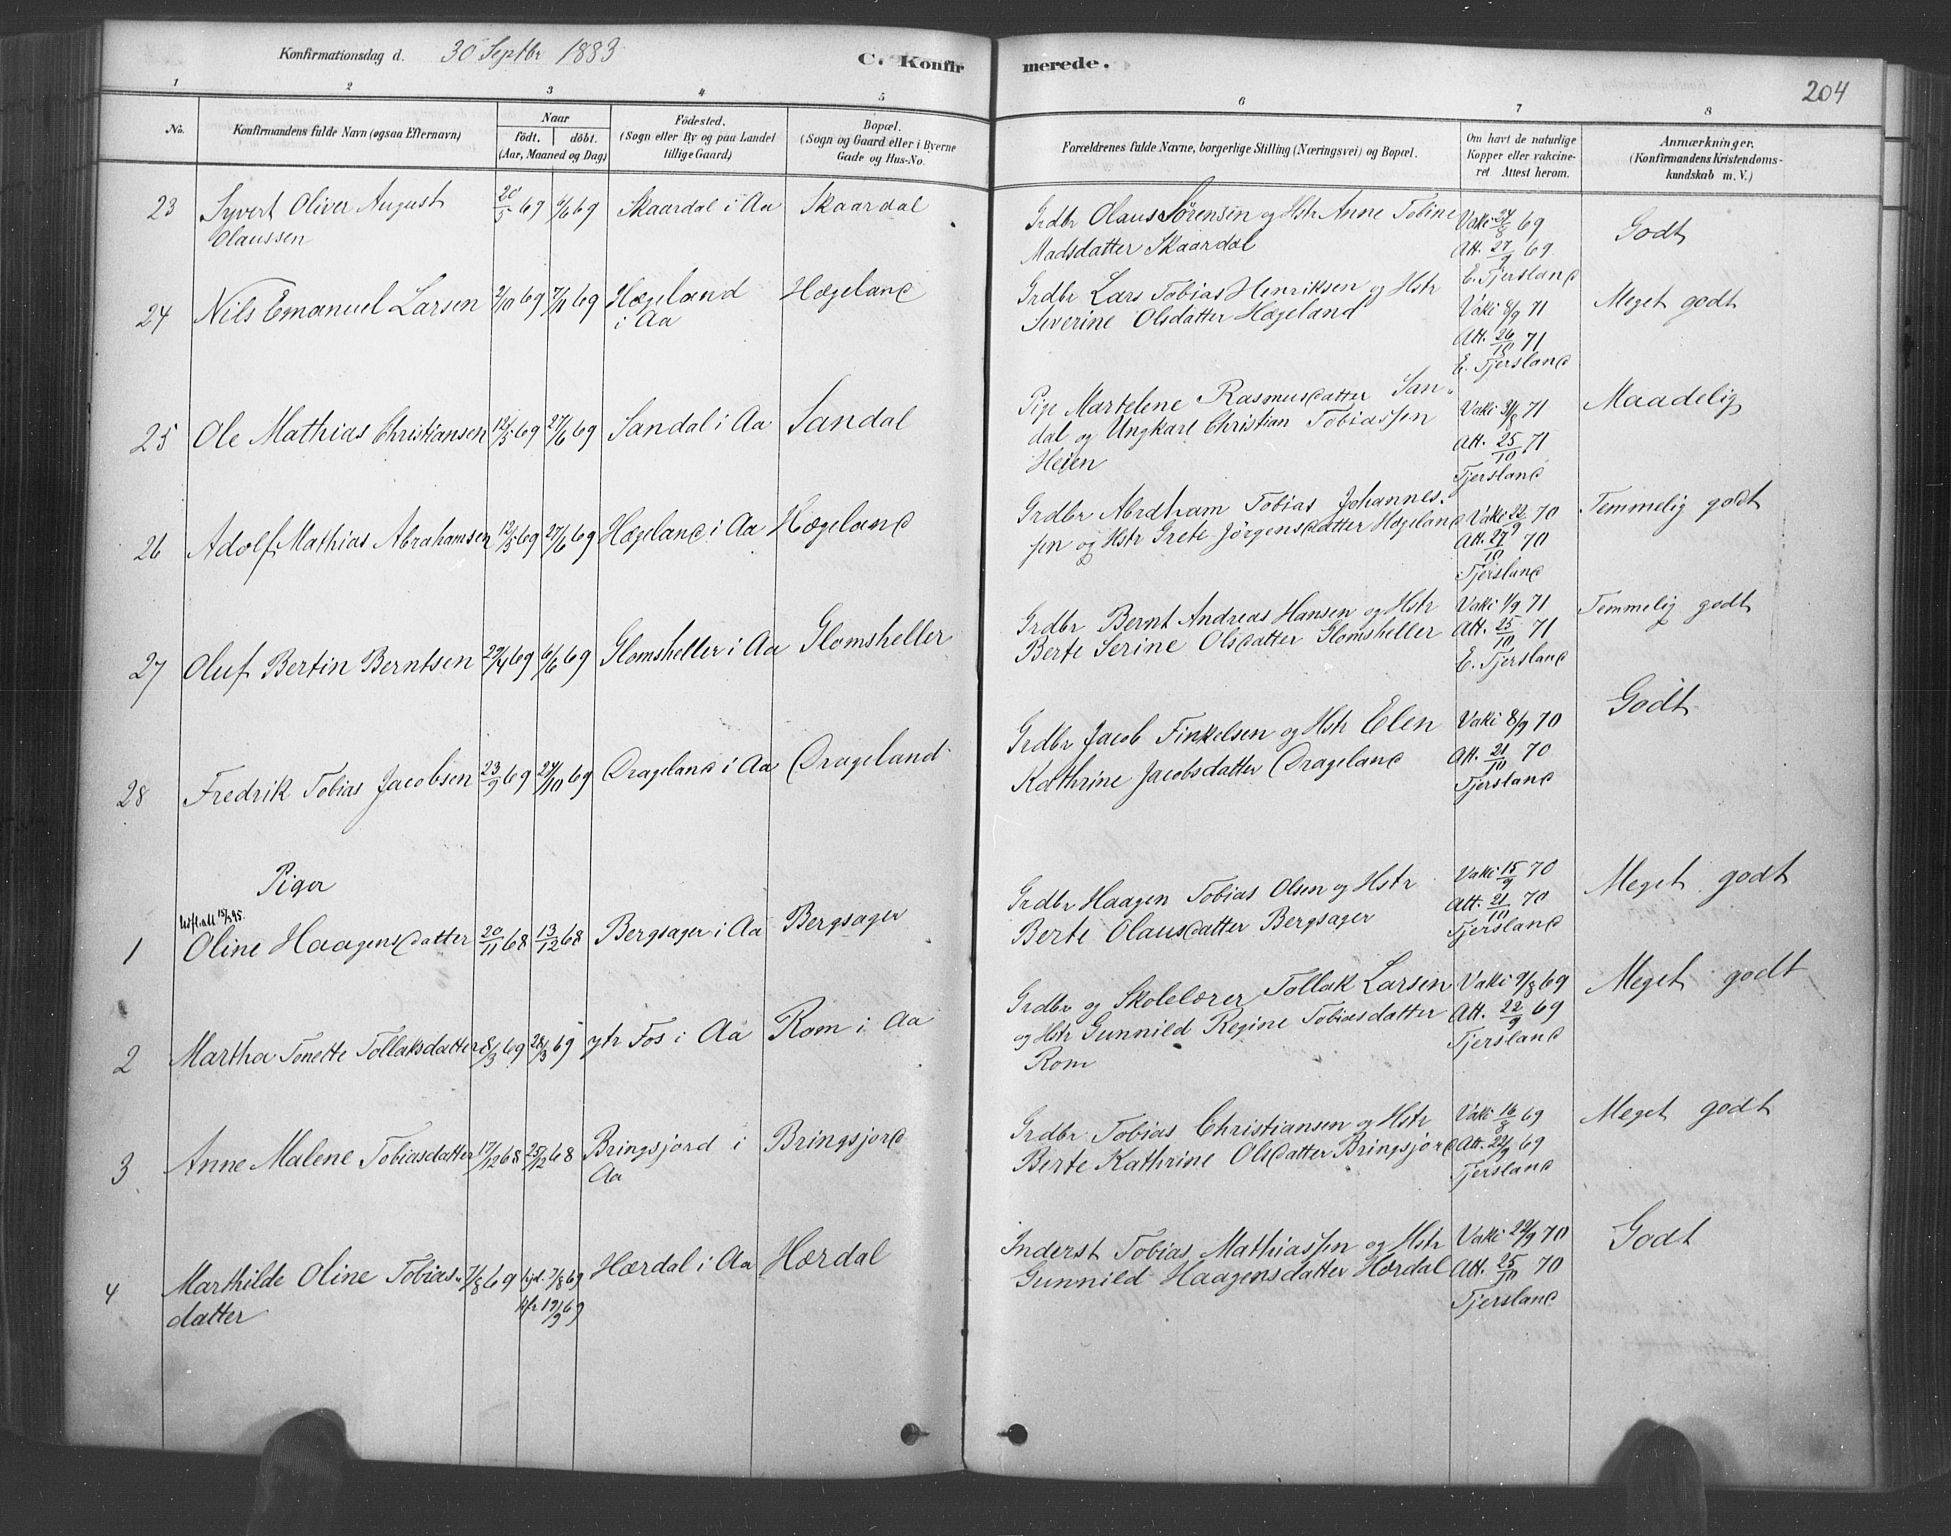 Konfirmationsdag d. 30 Septbr 1883
C. Konfirmerede.
204
1 2 3 4 5 6 7 8
No.
Konfirmandens fulde Navn (ogsaa Efternavn)
Naar
födt. döbt.
(Aar, Maaned og Dag)
Födested.
(Sogn eller By og paa Landet
tillige Gaard)
Bopæl.
(Sogn og Gaard eller i Byerne
Gade og Hus-No.
Forældrenes fulde Navne, borgerlige Stilling (Næringsvei) og Bopæl.
Om havt de naturlige
Kopper eller vakcine-
ret Attest herom.
Anmærkninger.
(Konfirmandens Kristendoms-
kundskab m. V.)
23 Syvert Oliver August 20/5 69 6/6 69 Skaardal i Aa Skaardal Grdbr Olaus Sørensen og Hstr Anne Tobine Vaki 24/8 69 Godt
Olaussen Madsdatter Skaardal Att. 27/9 69
E. Tjersland
24 Nils Emanuel Larsen 2/10 69 7/11 69 Hægeland Hægeland Grdbr Lars Tobias Henriksen og Hstr Vaki 8/9 71 Meget godt
i Aa Severine Olsdatter Hægeland Att. 26/10 71
E. Tjersland
25 Ole Mathias Christiansen 12/5 69 27/6 69 Sandal i Aa Sandal Pige Martelene Rasmusdatter San- Vaki 31/8 71 Maadelig
dal og Ungkarl Christian Tobiassen Att. 25/10 71
Heien Tjersland
26 Adolf Mathias Abrahamsen 12/5 69 27/6 69 Hægeland i Aa Hægeland Grdbr Abraham Tobias Johannes- Vaki 22/9 70 Temmelig godt
sen og Hstr Grete Jörgensdatter Hægeland Att. 27/10 70
Tjersland
27 Oluf Bertin Berntsen 29/4 69 6/6 69 Glomsheller i Aa Glomsheller Grdbr Bernt Andreas Hansen og Hstr Vaki 1/9 71 Temmelig godt
Berte Serine Olsdatter Glomsheller Att. 25/10 71
E. Tjersland
28 Fredrik Tobias Jacobsen 23/9 69 24/10 69 Drageland i Aa Drageland Grdbr Jacob Finkelsen og Hstr Elen Vaki 8/9 70 Godt
Kathrine Jacobsdatter Drageland Att. 21/10 70
Tjersland
Piger
1 Oline Haagensdatter 20/11 68 13/12 68 Bergsager i Aa Bergsager Grdbr Haagen Tobias Olsen og Hstr Vaki 15/9 70 Meget godt
Berte Olausdatter Bergsager Att. 21/10 70
Tjersland
2 Martha Tonette Tollaksdatter 8/3 69 28/3 69 ytr Fos i Aa Rom i Aa Grdbr og Skolelærer Tollak Larsen Vaki 9/8 69 Meget godt
og Hstr Gunnild Regine Tobiasdatter Att. 22/9 69
Rom Tjersland
3 Anne Malene Tobiasdatter 17/12 68 25/12 68 Bringsjord i Bringsjord Grdbr Tobias Christiansen og Hstr Vaki 16/8 69 Meget godt
Aa Berte Kathrine Olsdatter Bringsjord Att. 22/9 69
Tjersland
4 Marthilde Oline Tobias- 7/8 69 hjd. 7/8 69 Hærdal i Aa Hærdal Inderst Tobias Mathiassen og Hstr Vaki 22/9 70 Godt
datter kfr 19/9 69 Gunnild Haagensdatter Hærdal Att. 25/10 70
Tjersland